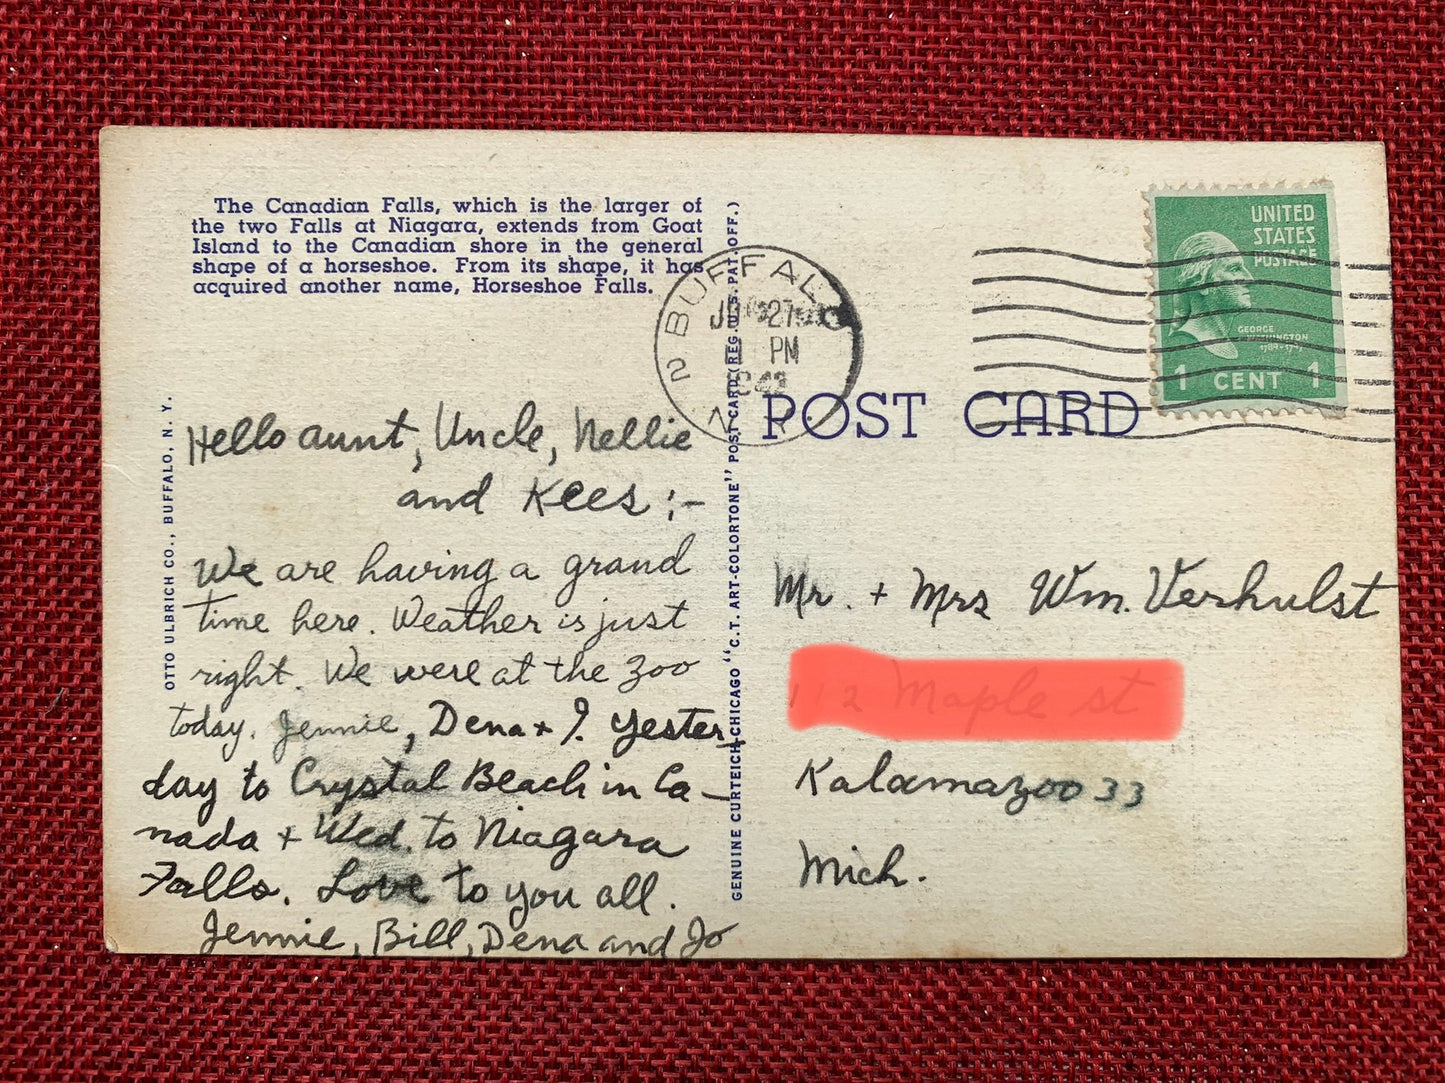 The Canadian Falls, which is the larger of
the two Falls at Niagara, extends from Goat
Island to the Canadian shore in the general
shape of a horseshoe. From its shape, it has
acquired another name, Horseshoe Falls.
OTTO ULBRICH CO., BUFFALO, N. Y.
Hello aunt, Uncle, Nellie
and Kees :-
We are having a grand
time here. Weather is just
right. We were at the zoo
today. Jennie, Dena + J. Yester-
day to Crystal Beach in Ca-
nada + Wed. to Niagara
Falls. Love to you all.
Jennie, Bill, Dena and Jo
GENUINE CURTEICH-CHICAGO "C.T. ART-COLORTONE" POST CARD (REG. U.S. PAT. OFF.)
BUFFALO 2
27
PM
POST CARD
UNITED
STATES
POSTAGE
GEORGE
WASHINGTON
1789-1797
1 CENT 1
Mr. + Mrs Wm. Verhulst
Maple st
Kalamazoo 33
Mich.